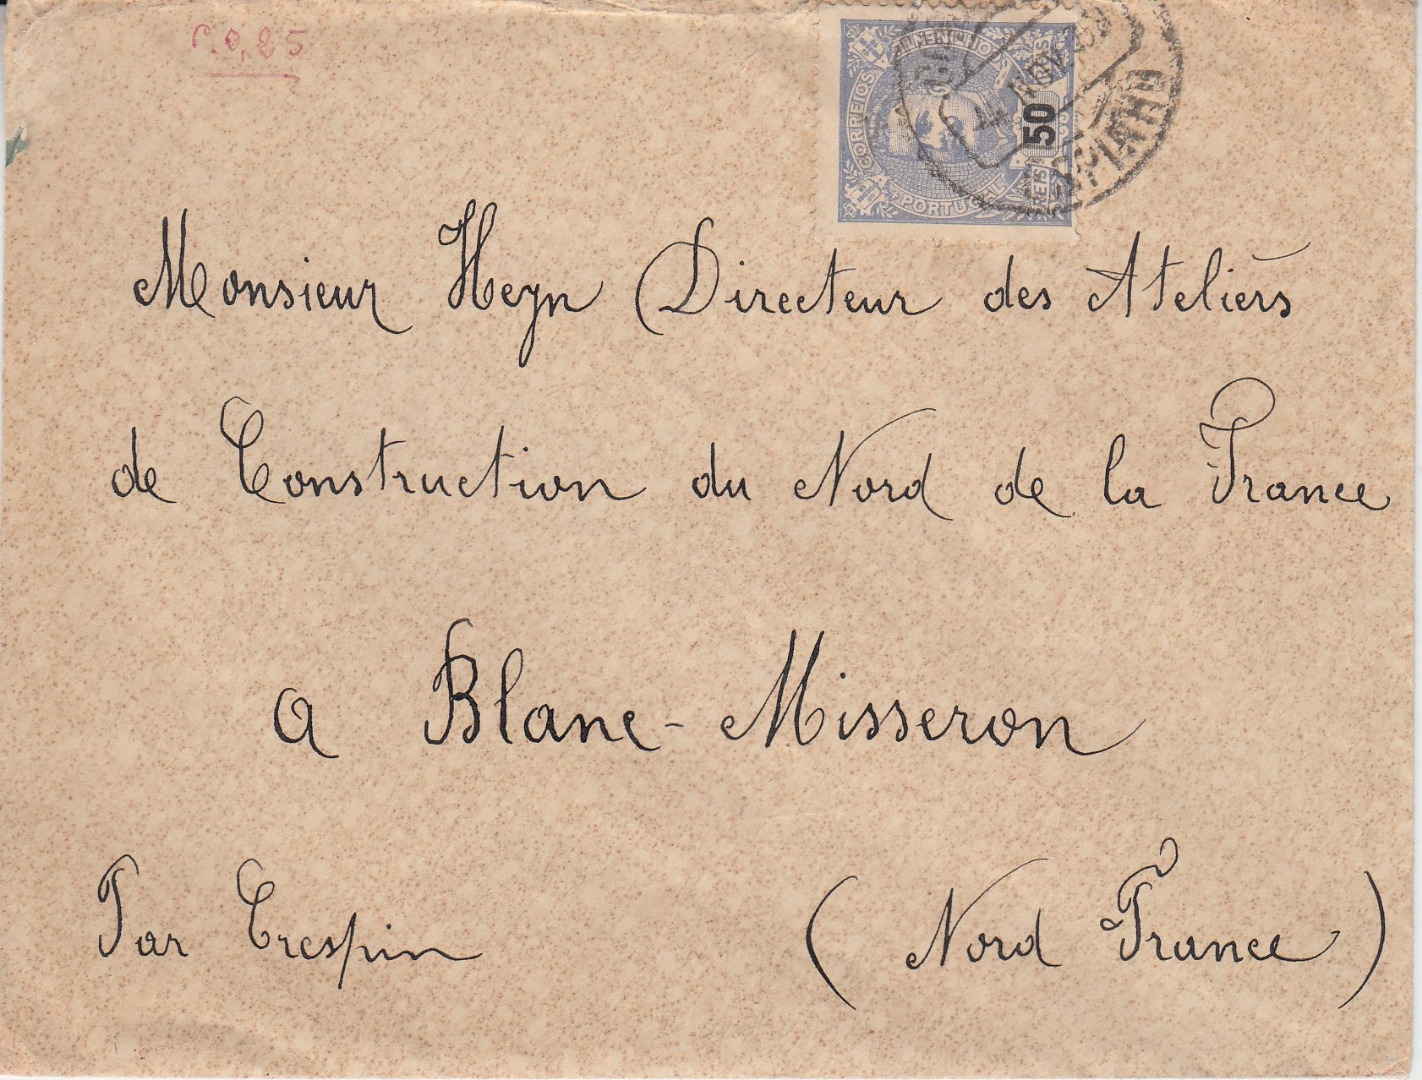 P. 0,25
CORREIOS
PORTUGAL
REIS 50 REIS
4 NOV
ESPINHO
Monsieur Heyn Directeur des Ateliers
de Construction du Nord de la France
a Blanc-Misseron
Par Crespin (Nord France)